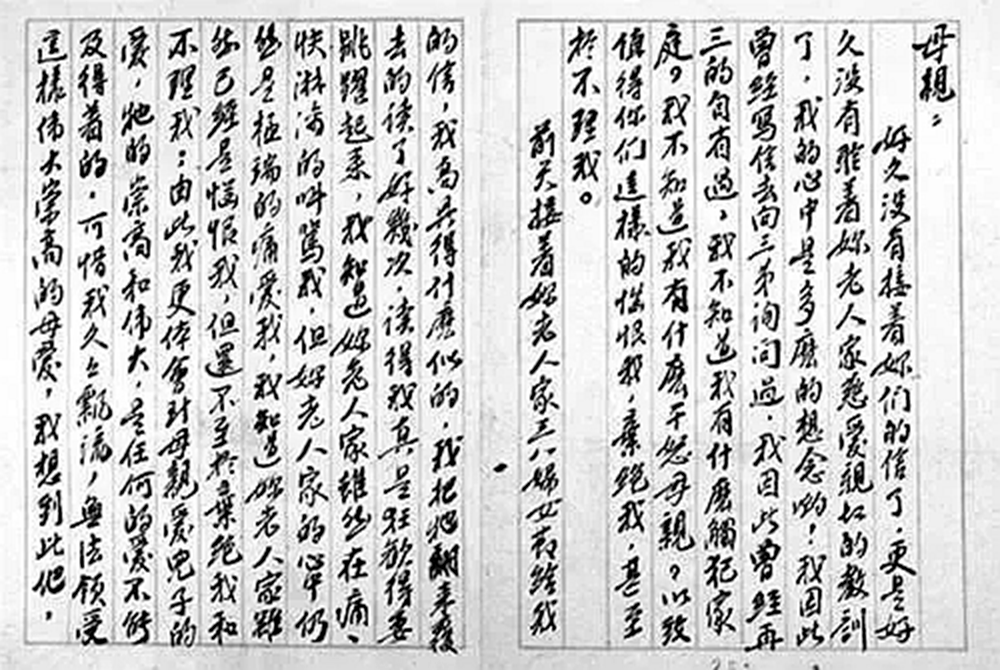 母親：
好久没有接着妳們的信了，更是好
久没有聆着妳老人家慈愛親切的教訓
了，我的心中是多麽的想念喲！我因此
曾經寫信去向三弟詢问過，我因此曾經再
三的自有過，我不知道我有什麽觸犯家
庭？我不知道我有什麽干怒母親？以致
值得你们這樣的惱恨我，棄絶我，甚至
於不理我。
前天接着妳老人家三八婦女節給我
的信，我高兴得什麽似的，我把牠翻来復
去的读了好幾次，读得我真是狂歡得要
跳躍起来，我知道妳老人家雖然在痛、
快淋漓的呌罵我，但妳老人家的心中仍
然是極端的痛愛我，我知道妳老人家雖
然已經是惱恨我，但還不至於棄絶我和
不理我；由此我更体會到母親愛兒子的
愛，牠的崇高和偉大，是任何的愛不能
及得着的，可惜我久久飄流，無法領受
這樣偉大崇高的母愛，我想到此地，